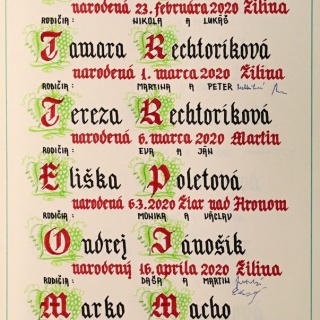 narodená 23. februára 2020 Žilina
RODIČIA: NIKOLA A LUKÁŠ
Tamara Rechtoríková
narodená 1. marca 2020 Žilina
RODIČIA: MARTINA A PETER
Tereza Rechtoríková
narodená 6. marca 2020 Martin
RODIČIA: EVA A JÁN
Eliška Poletová
narodená 6.3.2020 Žiar nad Hronom
RODIČIA: MONIKA A VÁCLAV
Ondrej Jánošík
narodený 16. apríla 2020 Žilina
RODIČIA: DAŠA A MARTIN
Marko Macho